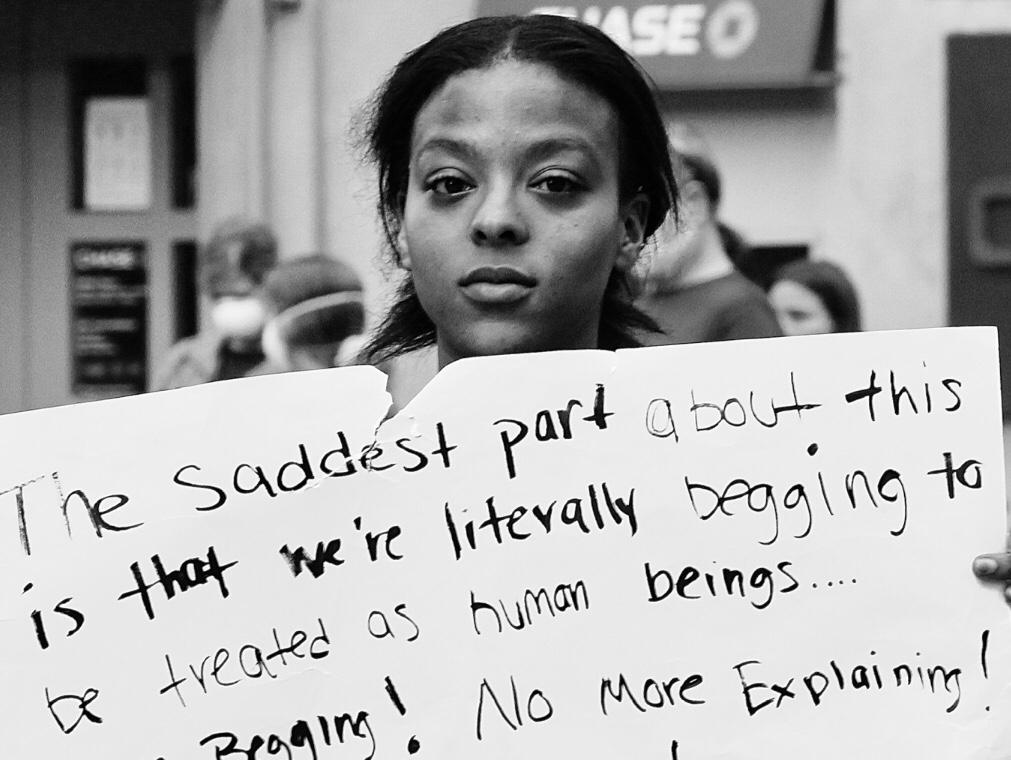 CHASE
CHASE
The saddest part about this
is that we're literally begging to
be treated as human beings....
Begging! No More Explaining!